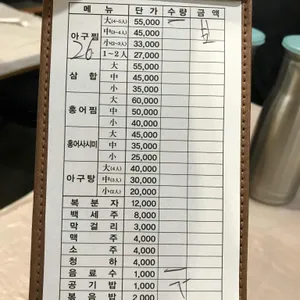 메 뉴 단 가 수량 금 액
아구찜 大(4~5人) 55,000
中(3~4人) 45,000
小(2~3人) 33,000
1~2人 27,000
26
삼 합 大 55,000
中 45,000
小 35,000
홍어찜 大 60,000
中 50,000
小 40,000
홍어사시미 大 45,000
中 35,000
小 25,000
아구탕 大(4人) 40,000
中(3人) 30,000
小(2人) 20,000
복 분 자 12,000
백 세 주 8,000
막 걸 리 3,000
맥 주 4,000
소 주 4,000
청 하 4,000
음 료 수 1,000
공 기 밥 1,000
볶 음 밥 2,000